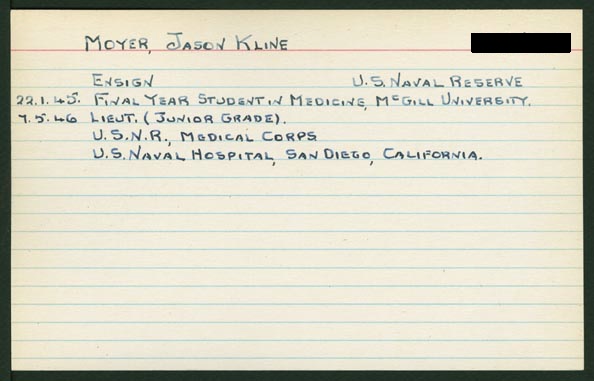 MOYER, JASON KLINE
ENSIGN U.S. NAVAL RESERVE
22.1.45. FINAL YEAR STUDENT IN MEDICINE, McGILL UNIVERSITY.
7.5.46 LIEUT. (JUNIOR GRADE).
U.S.N.R., MEDICAL CORPS
U.S. NAVAL HOSPITAL, SAN DIEGO, CALIFORNIA.